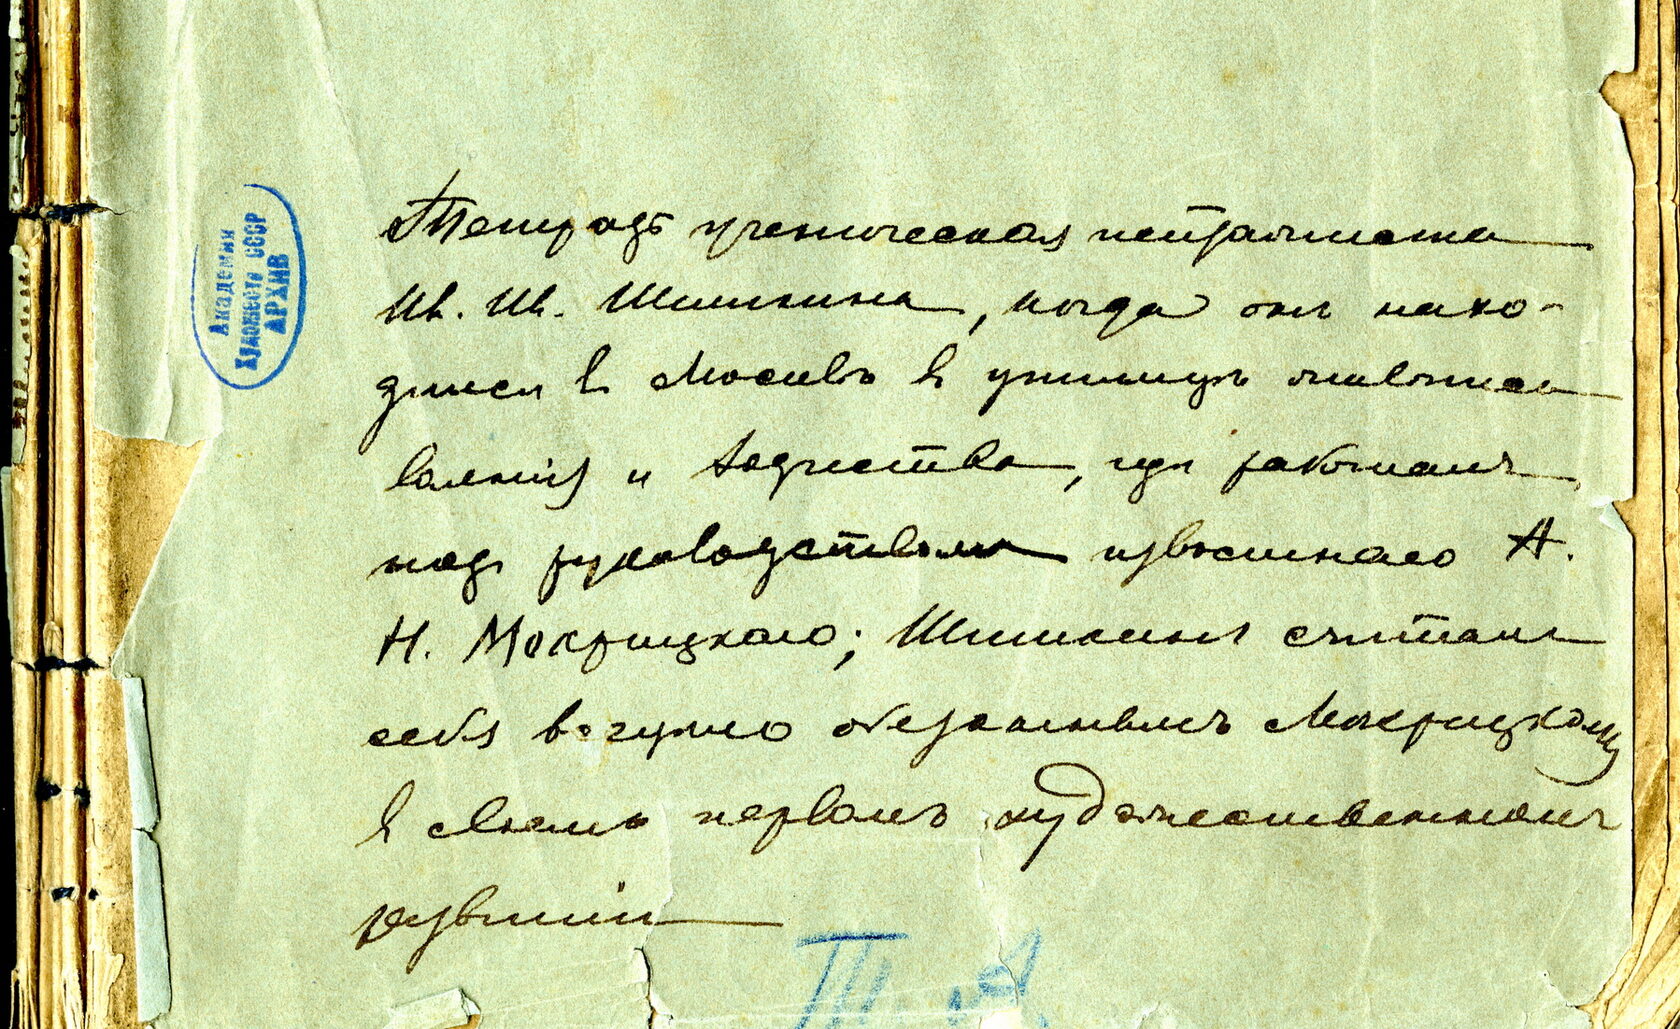 Академия
Художеств СССР
АРХИВ
Тетрадь ученическая пейзажиста
Ив. Ив. Шишкина, когда он нахо-
дился в Москве в училище живописи
ваяния и зодчества, где работалъ
подъ руководствомъ известнаго А.
Н. Мокрицкаго; Шишкинъ считалъ
себя во многом обязаннымъ Мокрицкому
в своемъ первомъ художественномъ
развитіи